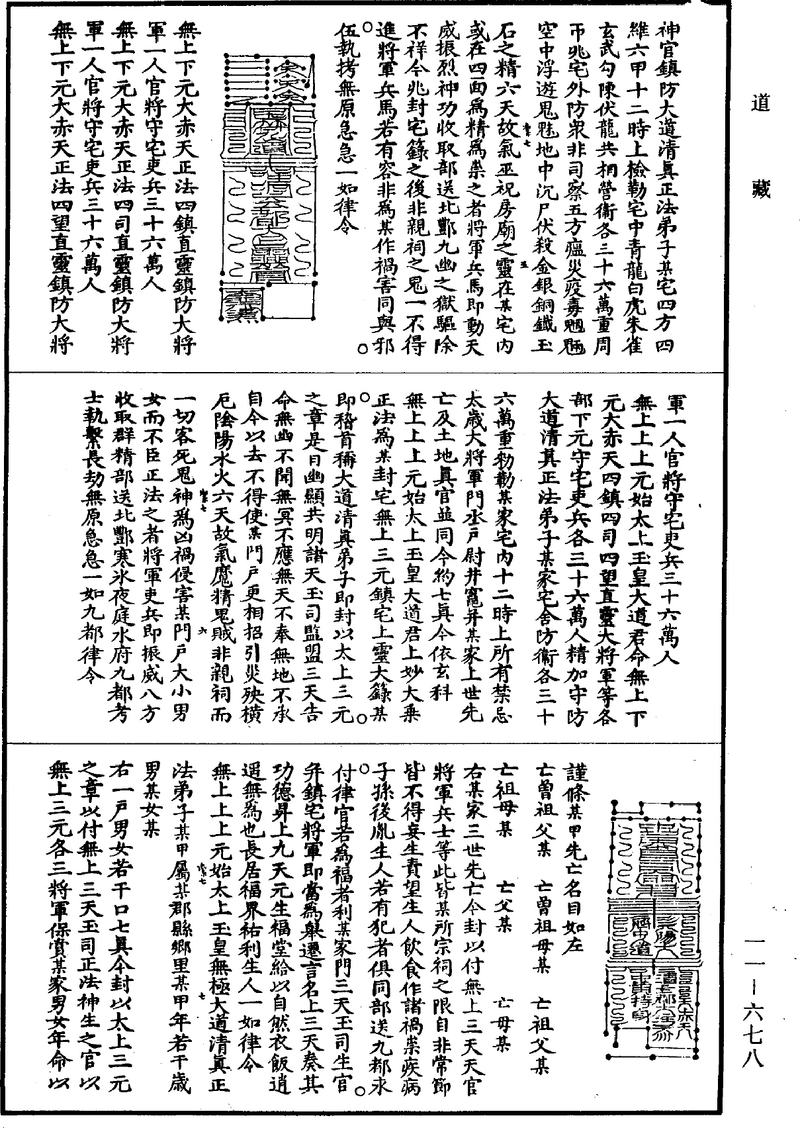 道藏
神官鎮防大道清真正法弟子某宅四方四
維六甲十二時上檢勒宅中青龍白虎朱雀
玄武勾陳伏龍共相營衛各三十六萬重周
帀兆宅外防衆非司察五方瘟災疫毒魍魎
空中浮遊鬼魅地中沉尸伏殺金銀銅鐵玉
石之精六天故氣巫祝房廟之靈在某宅內
或在四面為精為祟之者將軍兵馬即動天
威振烈神功收取部送北酆九幽之獄驅除
不祥今兆封宅籙之後非親祠之鬼一不得
進將軍兵馬若有容非為某作禍害同與邪
伍執拷無原急急一如律令
無上下元大赤天正法四鎮直靈鎮防大將
軍一人官將守宅吏兵三十六萬人
無上下元大赤天正法四司直靈鎮防大將
軍一人官將守宅吏兵三十六萬人
無上下元大赤天正法四望直靈鎮防大將
軍一人官將守宅吏兵三十六萬人
無上上上元始太上玉皇大道君命無上下
元大赤天四鎮四司四望直靈大將軍等各
部下元守宅吏兵各三十六萬人精加守防
大道清真正法弟子某家宅舍防衛各三十
六萬重勑勒某家宅內十二時上所有禁忌
太歲大將軍門丞戶尉井竈并某家上世先
亡及土地真官並同今約七真今依玄科
無上上上元始太上玉皇大道君上妙大乘
正法為某封宅無上三元鎮宅上靈大籙某
即稽首稱大道清真弟子即封以太上三元
之章是日幽顯共明諸天玉司監盟三天告
命無幽不聞無冥不應無天不奉無地不承
自今以去不得使某門戶更相招引災殃橫
厄陰陽水火六天故氣魔精鬼賊非親祠而
一切客死鬼神為凶禍侵害某門戶大小男
女而不臣正法之者將軍吏兵即振威八方
收取群精部送北酆寒氷夜庭水府九都考
士執繫長劫無原急急一如九都律令
謹條某甲先亡名目如左
亡曾祖父某　亡曾祖母某　亡祖父某
亡祖母某　亡父某　亡母某
右某家三世先亡今封以付無上三天天官
將軍兵士等此皆某所宗祠之限自非常節
皆不得妄生責望生人飲食作諸禍祟疾病
子孫後胤生人若有犯者俱同部送九都永
付律官若為福者利某家門三天玉司生官
弁鎮宅將軍即當為舉遷言名上三天奏其
功德昇上九天元生福堂給以自然衣飯逍
遥無為也長居福界祐利生人一如律令
無上上上元始太上玉皇無極大道清真正
法弟子某甲屬某郡縣鄉里某甲年若干歲
男某女某
右一戶男女若干口七真今封以太上三元
之章以付無上三天玉司正法神生之官以
無上三元各三將軍保賞某家男女年命以
一一－六七八